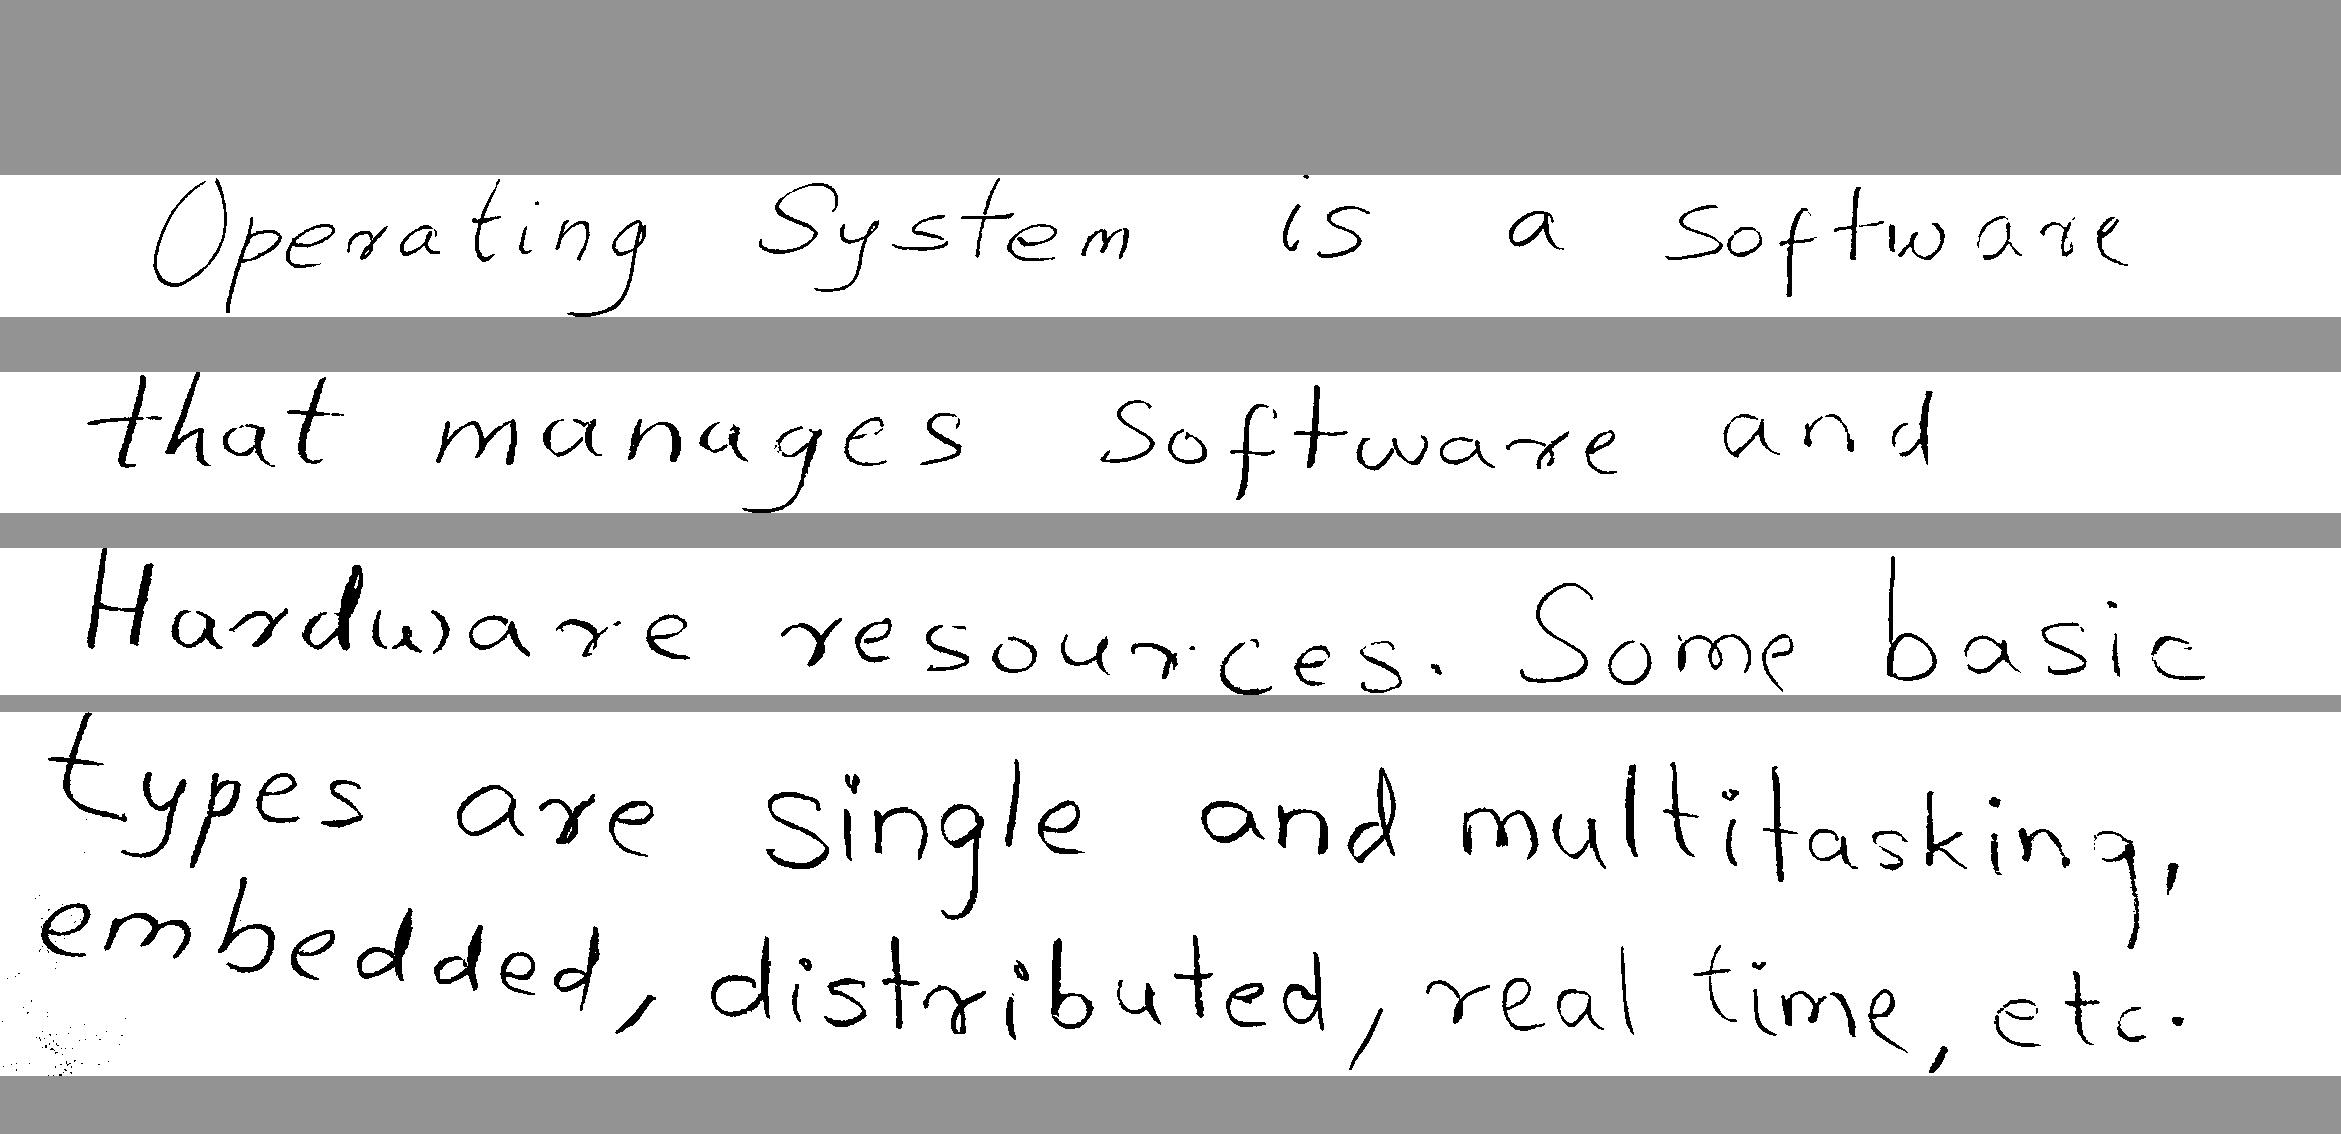 Operating System is a software
that manages software and
Hardware resources. Some basic
types are single and multitasking,
embedded, distributed, real time, etc.